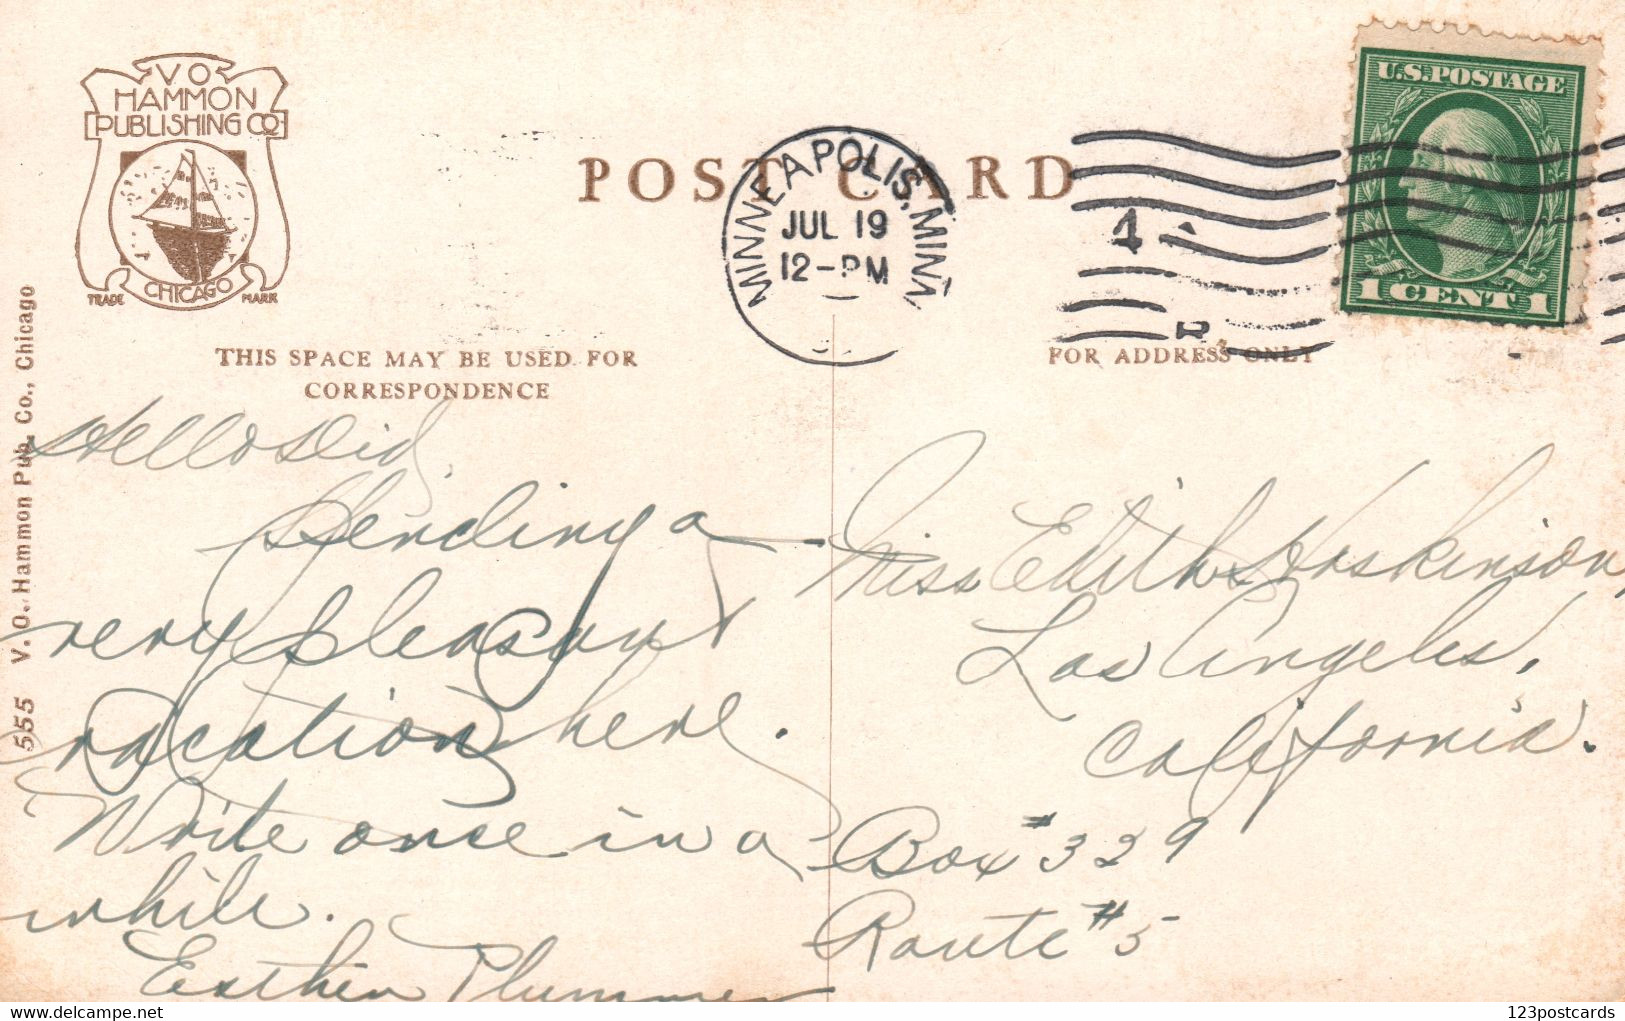 V O
HAMMON
PUBLISHING CO
TRADE CHICAGO MARK
POST CARD
MINNEAPOLIS, MINN.
JUL 19
12-PM
1
U.S. POSTAGE
1 CENT 1
THIS SPACE MAY BE USED FOR
CORRESPONDENCE
FOR ADDRESS ONLY
555 V. O. Hammon Pub. Co., Chicago
Hello Did.
Spending a
very pleasant
vacation here.
Write once in a
while.
Esther Plummer
Miss Edith Hoskinson,
Los Angeles,
California.
Box #329
Route #5
123postcards